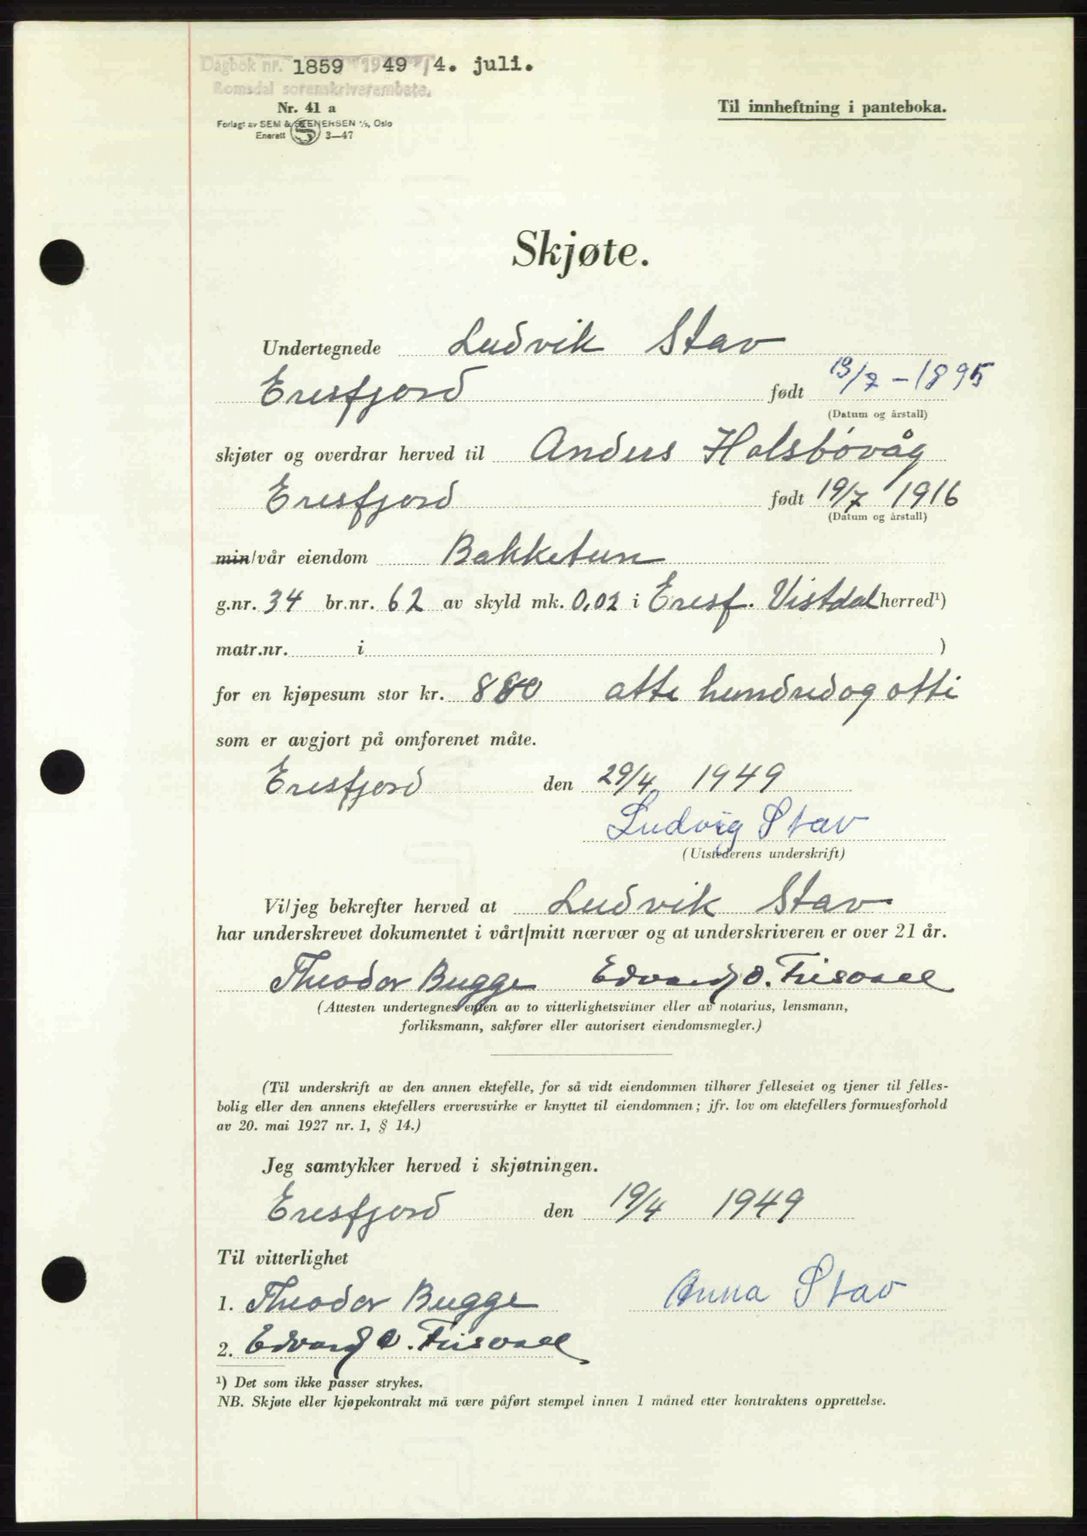 Dagbok nr. 1859 1949 4. juli.
Romsdal sorenskriverembete.
Nr. 41 a
Forlagt av SEM & STENERSEN A/S, Oslo
Enerett S 3—47
Til innheftning i panteboka.
Skjøte.
Undertegnede Ludvik Stav
Eresfjord født 19/7 - 1895
(Datum og årstall)
skjøter og overdrar herved til Anders Holsbøvåg
Eresfjord født 19/7 1916
(Datum og årstall)
min/vår eiendom Bakketun
g.nr. 34 br.nr. 62 av skyld mk. 0,02 i Eresf. Vistdal herred¹)
matr.nr. i )
for en kjøpesum stor kr. 880 åtte hundred og otti
som er avgjort på omforenet måte.
Eresfjord den 29/4 1949
Ludvig Stav
(Utstederens underskrift)
Vi/jeg bekrefter herved at Ludvik Stav
har underskrevet dokumentet i vårt/mitt nærvær og at underskriveren er over 21 år.
Theodor Bugge Edvard O. Frisvoll
(Attesten undertegnes enten av to vitterlighetsvitner eller av notarius, lensmann,
forliksmann, sakfører eller autorisert eiendomsmegler.)
(Til underskrift av den annen ektefelle, for så vidt eiendommen tilhører felleseiet og tjener til felles-
bolig eller den annens ektefellers ervervsvirke er knyttet til eiendommen; jfr. lov om ektefellers formuesforhold
av 20. mai 1927 nr. 1, § 14.)
Jeg samtykker herved i skjøtningen.
Eresfjord den 19/4 1949
Til vitterlighet
1. Theodor Bugge Anna Stav
2. Edvard O. Frisvoll
¹) Det som ikke passer strykes.
NB. Skjøte eller kjøpekontrakt må være påført stempel innen 1 måned etter kontraktens opprettelse.